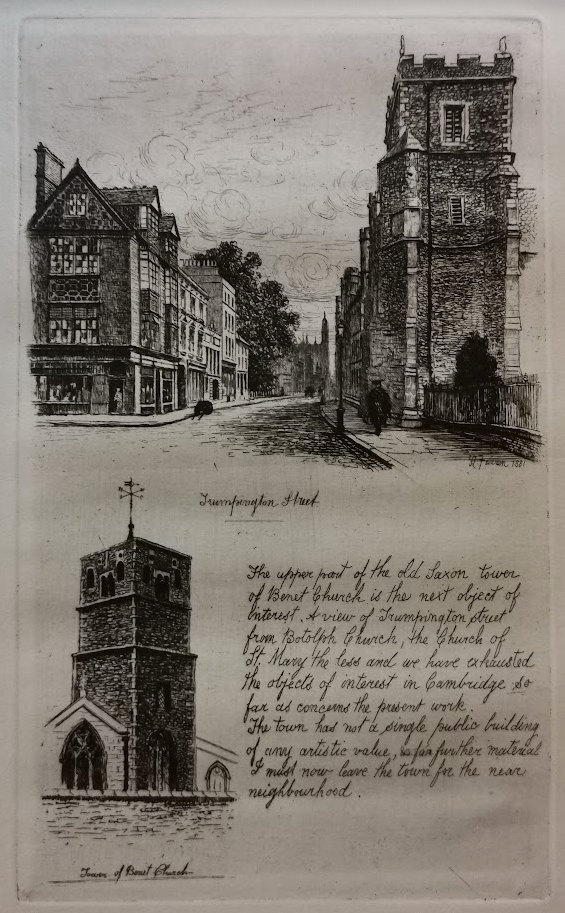 R Farren 1881
Trumpington Street
The upper part of the old Saxon tower
of Benet Church is the next object of
interest. A view of Trumpington street
from Botolph Church, the Church of
St. Mary the less and we have exhausted
the objects of interest in Cambridge so
far as concerns the present work.
The town has not a single public building
of any artistic value, so for further material
I must now leave the town for the near
neighbourhood.
Tower of Benet Church